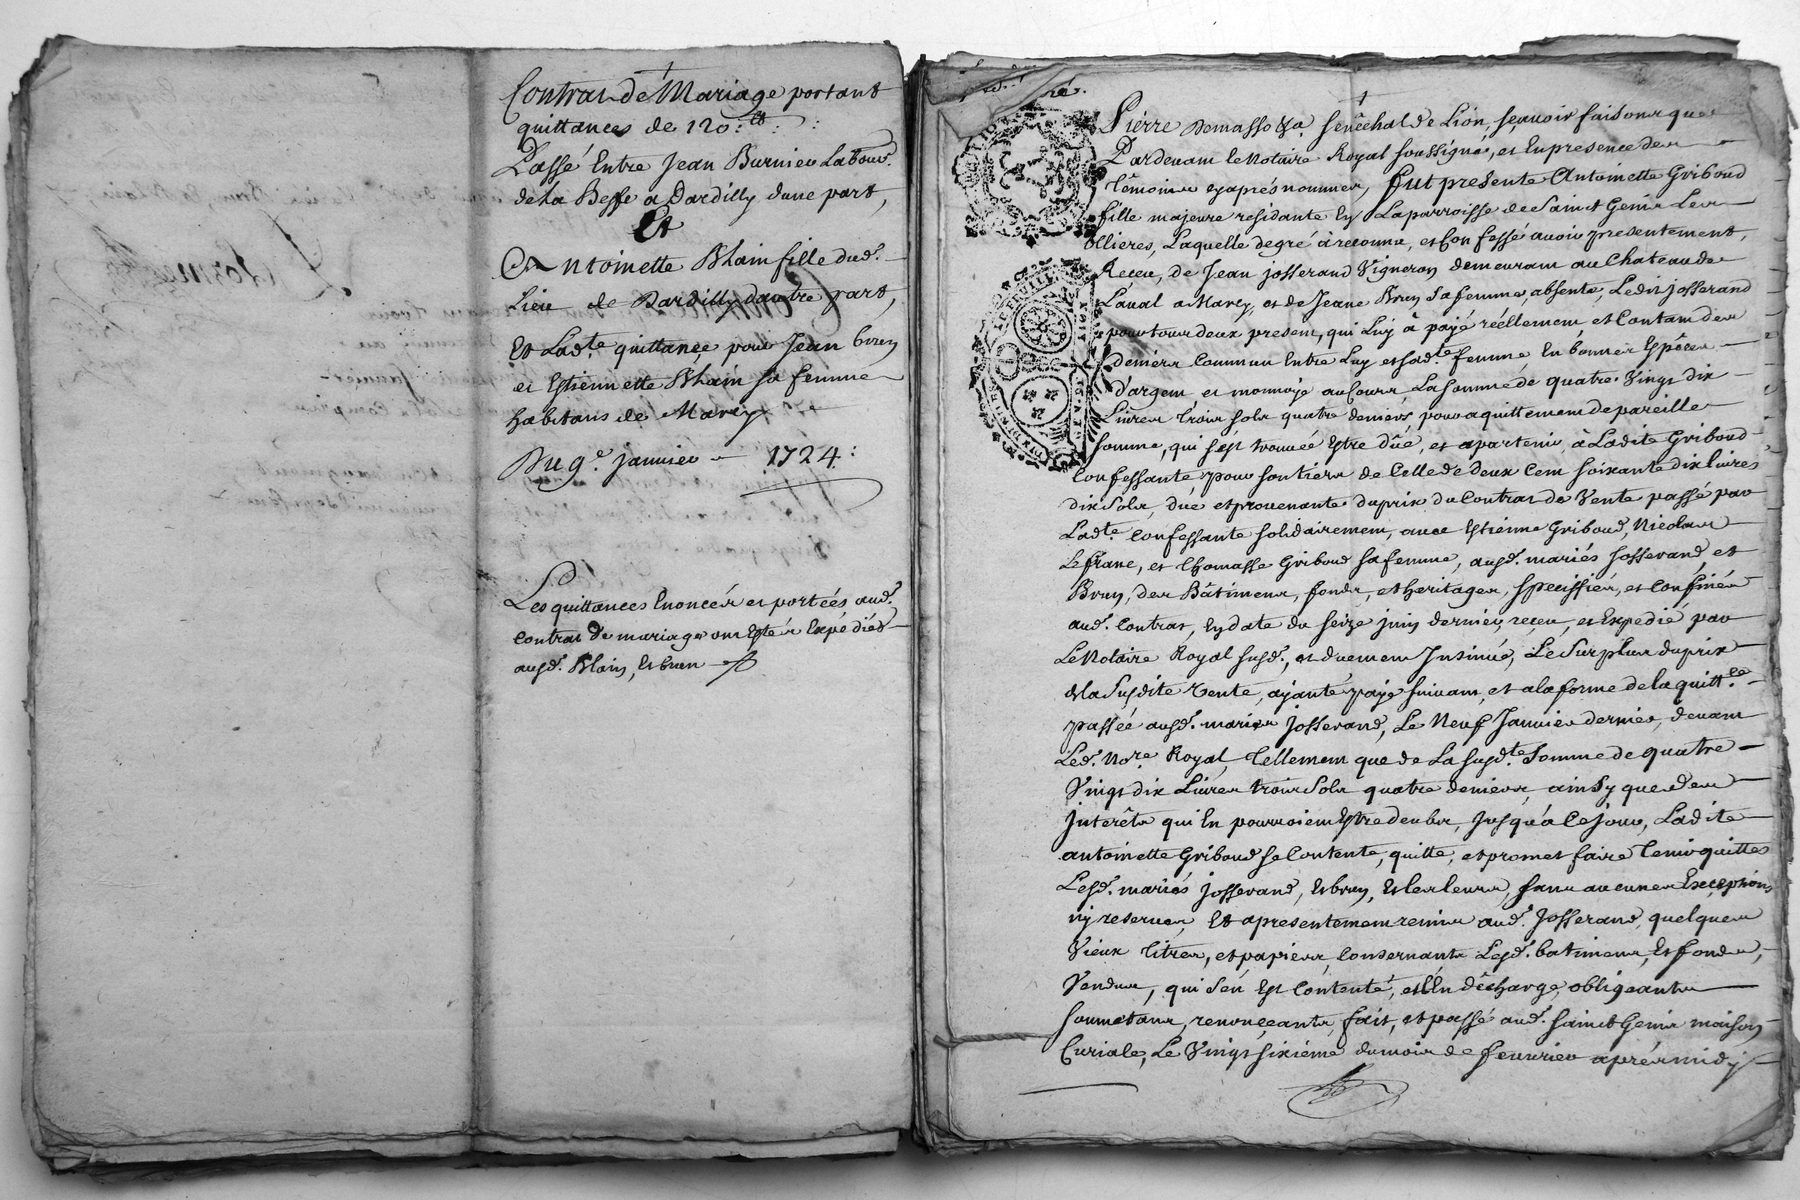 Contrat de Mariage portant
quittances de 120:ˡᵗ:
Passé Entre Jean Burnieu Labour.
de La Beffe a Dardilly dune part,
Et
Antoinette Blain fille dud.
Lieu de Dardilly dautre part,
Et Lad.te quittance pour Jean brun
et Estiennette Blain sa femme
habitans de Marcy
Du 9.e janvier 1724:
Les quittances Enoncées et portées aud.
contrat de mariage ont Estés Expédiés
ausd. Blain, Et brun
Pierre Demasso &a senêchal de Lion, sçavoir faisons que
Pardevant le Notaire Royal soussigné, et En presence des
Têmoins cyaprés nommés, fut presente Antoinette Griboud
fille majeure residante En La parroisse de Sainct Genis Les
ollieres, Laquelle degré à reconnu, et Confessé avoir presentement,
Receu, de Jean josserand Vigneron demeurant au Chateau de
Laval a Marcy, et de Jeane Brun sa femme absente, Ledit josserand
pour tous deux present, qui Luy à payé réellement et Contant des
deniers Communs Entre Luy et sadte femme En bonnes Espéces
d'argent et monnoye au Cours, La somme de quatre Vingt dix
Livres trois sols quatre deniers pour aquittement de pareille
somme, qui s'est trouvée Estre dûe, et apartenir à Ladite Griboud
Confessante, pour son tiers de Celle de deux Cent soixante dix livres
dix sols, due et provenante du prix du Contrat de Vente passé par
Ladte. Confessante solidairement, avec Estienne Griboud, Nicolas
Lefranc, et thomasse Griboud sa femme, ausd. mariés Josserand, et
Brun, des Bâtimens, fonds, et heritages, speciffiés, et Confinés
aud. Contrat, En date du seize juin dernier, receu, et Expedié par
Le Notaire Royal susd., et duement Insinué, Le Surplus du prix
de la Susdite Vente, ayant été payé suivant, et a la forme de la quitt.ce
passée ausd. mariés Josserand, Le Neuf Janvier dernier, devant
Led. No.re Royal, tellement que de La susd.te Somme de quatre
Vingt dix Livres trois Sols quatre deniers, ainsy que des
Interêts qui En pourroient Estre deubs, Jusqu'à Ce Jour, Ladite
antoinette Griboud se Contente, quitte, et promet faire tenir quittes
Lesd. mariés josserand, Et brun, Et les leurs, sans aucunes Exceptions
ny reserves, Et a presentement remis aud. Josserand, quelques
Vieux titres, et papiers, Concernants Lesd. batimens, Et fonds,
Vendus, qui s'en Est Contenté, et l'En dêcharge, obligeants
soumettans, renonçeants, fait, et passé aud. sainct Genis maison
Curiale, Le Vingt sixiéme du mois de fevrier aprés midy